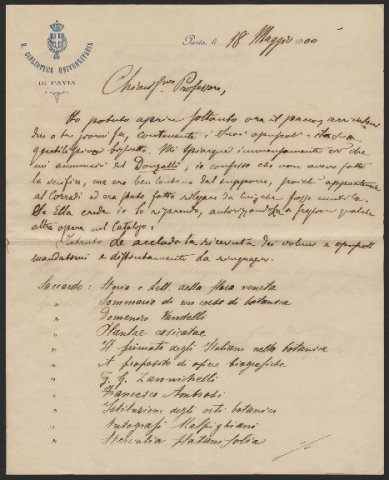 R. BIBLIOTECA UNIVERSITARIA
DI PAVIA
Pavia, li 18 Maggio 1900
Chiarissimo Professore,
Ho potuto aprire soltanto ora il pacco
contenente i Suoi opuscoli
Mi spiacque immensamente ciò che
mi annunciò del Donzelli; io confesso che non avevo fatto
la verifica, ma ero ben lontano dal supporre, poichè appartenne
al Corradi ed era stato fatto rilegare da lui che fosse
Se Ella crede io lo riprendo, autorizzandola a qualche
altra opera nel Catalogo.
Intanto Le accludo la ricevuta dei volumi e opuscoli
mandatomi e distintamente La ringrazio.
Saccardo: Storia e lett. della flora veneta
" Sommario di un corso di botanica
" Domenico Vandelli
" Plantae
" Il primato degli Italiani nella botanica
" A proposito di opere biografiche
" G. G. Zannichelli
" Francesco Ambrosi
" Istituzione degli orti botanici
" Autografi Malpighiani
" Sterculia platanifolia